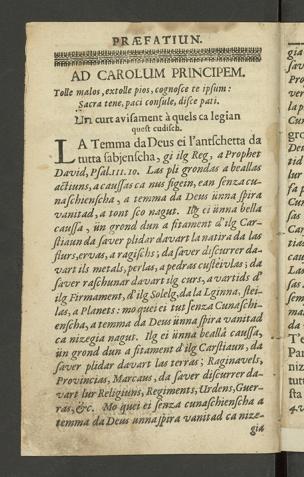 PRÆFATIUN.
AD CAROLUM PRINCIPEM.
Tolle malos, extolle pios, cognosce te ipsum:
Sacra tene, paci consule, disce pati.
Un curt avisament à quels ca legian
quest cudisch.
LA Temma da Deus ei l'antschetta da
tutta sabjenscha, gi ilg Reg, a Prophet
David, Psal. 111. 10. Las pli grondas a beallas
actiuns, a caussas ca nus figein, ean senza cu-
naschienscha, a temma da Deus ünna spira
vanitad, a tont sco nagut. Ilg ei ünna bella
caussa, ün grond dun a fitament d'ilg Car-
stiaun da saver plidar davart la natira da las
flurs, ervas, a ragischs; da saver discurrer da-
vart ils metals, perlas, a pedras custeivlas; da
saver raschunar davart ilg curs, a vartids d'
ilg Firmament, d'ilg Solelg, da la Gginna, stei-
las, a Planets: mo quei ei tut senza Cunaschi-
enscha, a temma da Deus ünna spira vanitad
ca nizegia nagut. Ilg ei ünna bealla caussa,
ün grond dun a fitament d'ilg Carstiaun, da
saver plidar davart las terras; Raginavels,
Provincias, Marcaus, da saver discurrer da-
vart lur Religiuns, Regiments, Urdens, Guer-
ras, &c. Mo quei ei senza cunaschienscha a
temma da Deus ünna spira vanitad ca nize-
gia